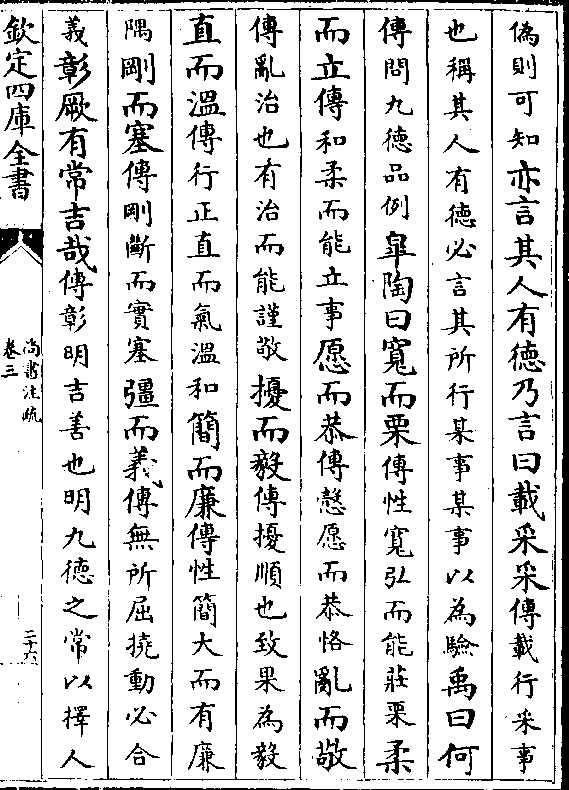 偽則可知亦言其人有德乃言曰載采采傳載行采事
也稱其人有德必言其所行某事某事以為驗禹曰何
傳問九德品例皐陶曰寬而栗傳性寬弘而能莊栗柔
而立傳和柔而能立事愿而恭傳慤愿而恭恪亂而敬
傳亂治也有治而能謹敬擾而毅傳擾順也致果為毅
直而溫傳行正直而氣溫和簡而廉傳性簡大而有廉
隅剛而塞傳剛斷而實塞彊而義傳無所屈撓動必合
義彰厥有常吉哉傳彰明吉善也明九德之常以擇人
欽定四庫全書
尚書注疏
卷三
二十六